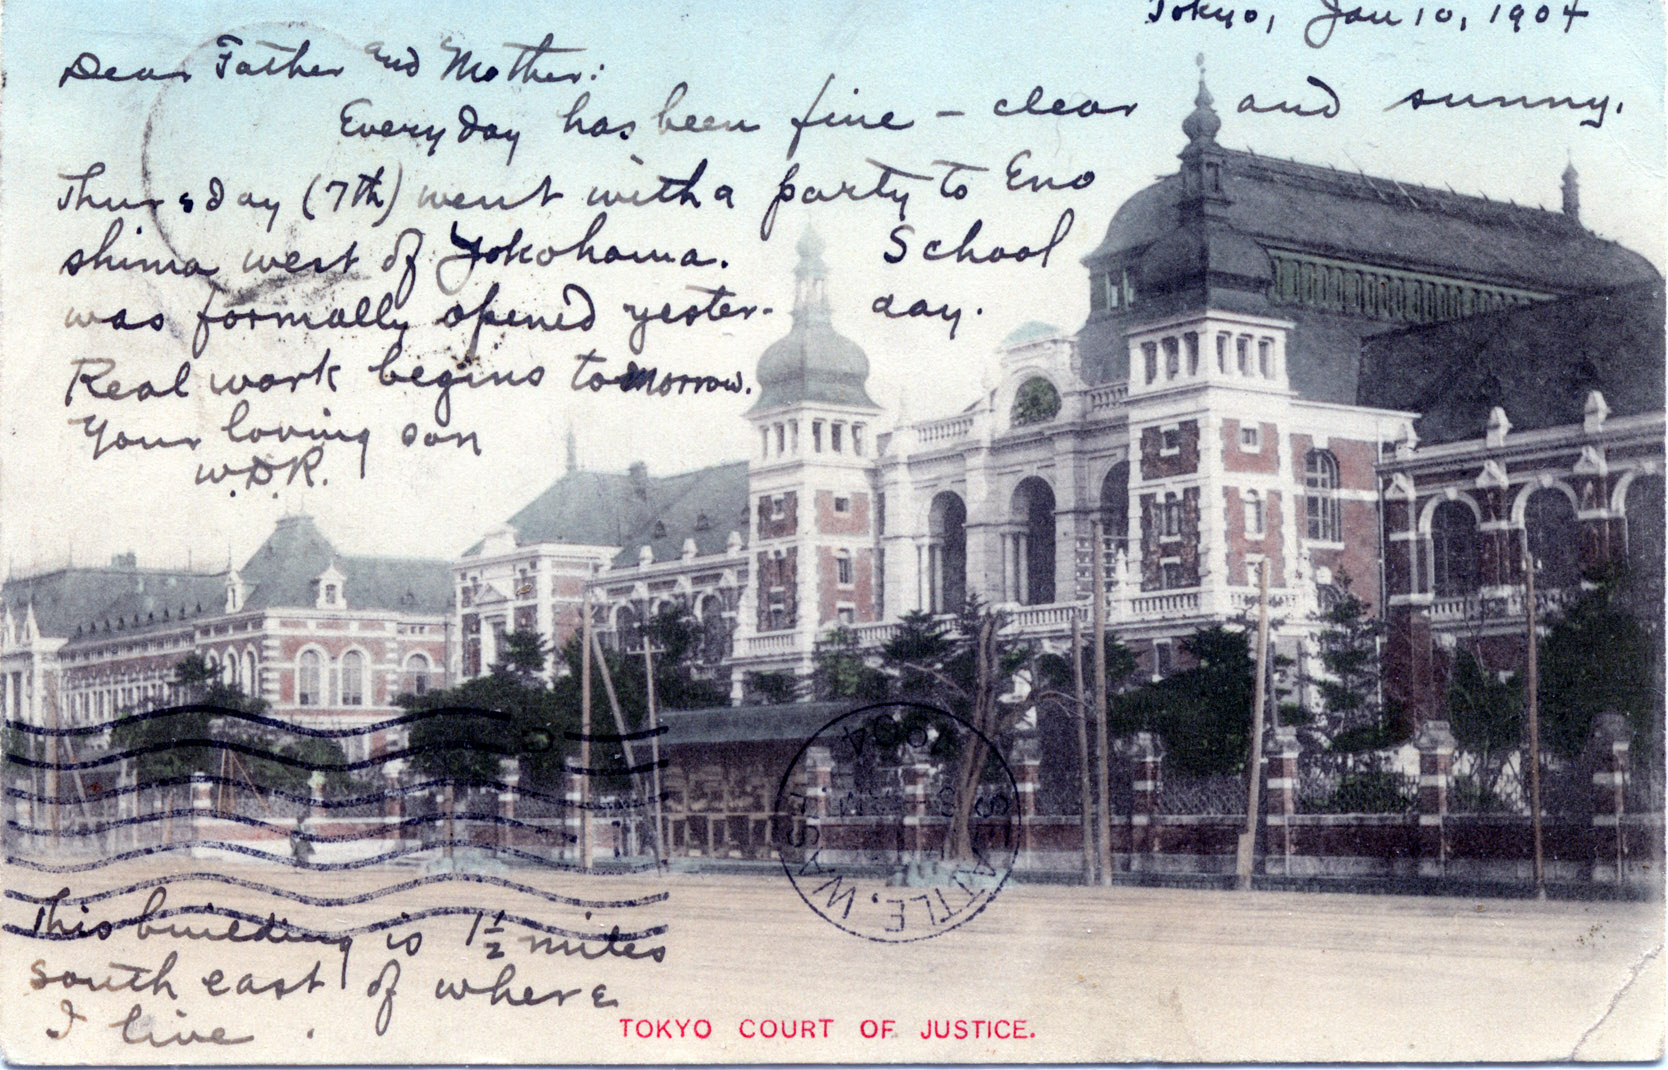 Tokyo, Jan 10, 1904
Dear Father and Mother:
Every day has been fine – clear and sunny.
Thursday (7th) went with a party to Eno
shima west of Yokohama. School
was formally opened yester- day.
Real work begins tomorrow.
Your loving son
W.D.R.
SEATTLE, WASH
1904
This building is 1½ miles
south east of where
I live.
TOKYO COURT OF JUSTICE.